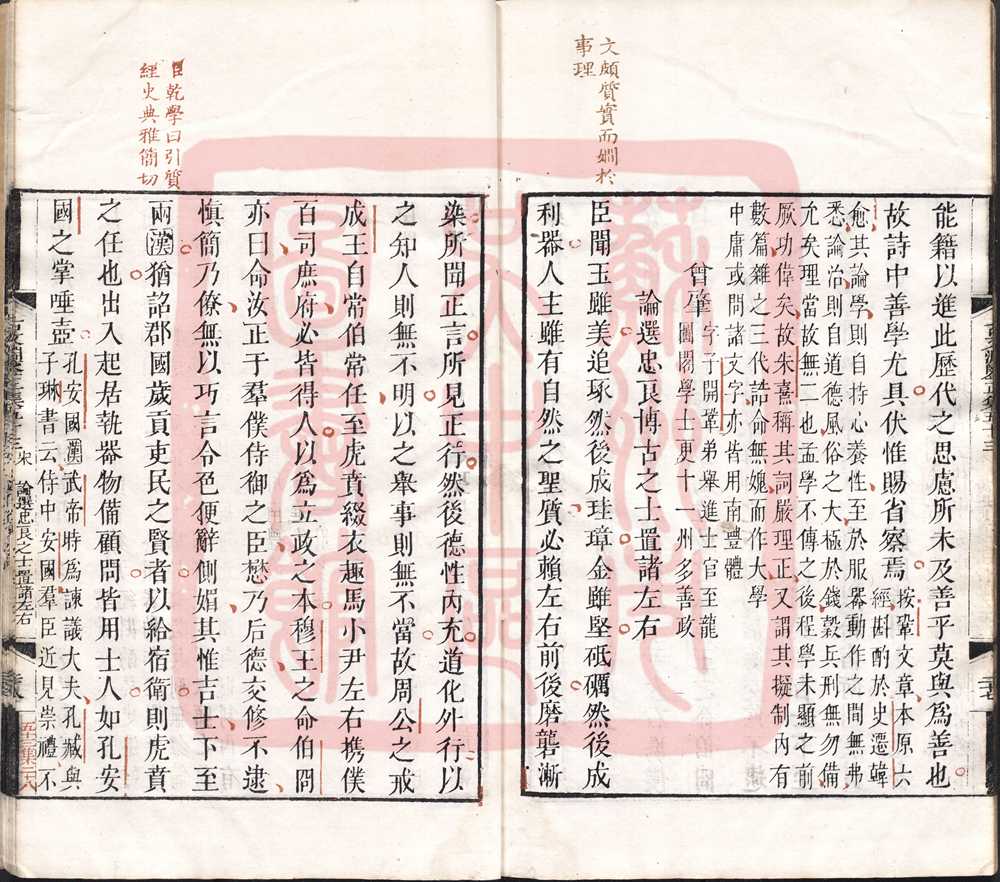 文頗質實而嫺於
事理
能籍以進此歷代之思慮所未及善乎莫與爲善也
故詩中善學尤具伏惟賜省察焉
按鞏文章本原六
經斟酌於史遷韓
愈其論學則自持心養性至於服器動作之間無弗
悉論治則自道德風俗之大極於錢穀兵刑無勿備
尤矣理當故無二也孟學不傳之後程學未顯之前
厥功偉矣故朱熹稱其詞嚴理正又謂其擬制內有
數篇雜之三代誥命無媿而作大學
中庸或問諸文字亦皆用南豐體
曾肇
字子開鞏弟舉進士官至龍
圖閣學士更十一州多善政
論選忠良博古之士置諸左右
臣聞玉雖美追琢然後成珪璋金雖堅砥礪然後成
利器人主雖有自然之聖質必賴左右前後磨礱漸
臣乾學曰引質
經史典雅簡切
染所聞正言所見正行然後德性內充道化外行以
之知人則無不明以之舉事則無不當故周公之戒
成王自常伯常任至虎賁綴衣趣馬小尹左右攜僕
百司庶府必皆得人以爲立政之本穆王之命伯冏
亦曰命汝正于羣僕侍御之臣懋乃后德交修不逮
慎簡乃僚無以巧言令色便辟側媚其惟吉士下至
兩漢猶詔郡國歲貢吏民之賢者以給宿衛則虎賁
之任也出入起居執器物備顧問皆用士人如孔安
國之掌唾壺
孔安國漢武帝時爲諫議大夫孔臧與
子琳書云侍中安國羣臣近見崇禮不
宋
論選忠良之士置諸左右